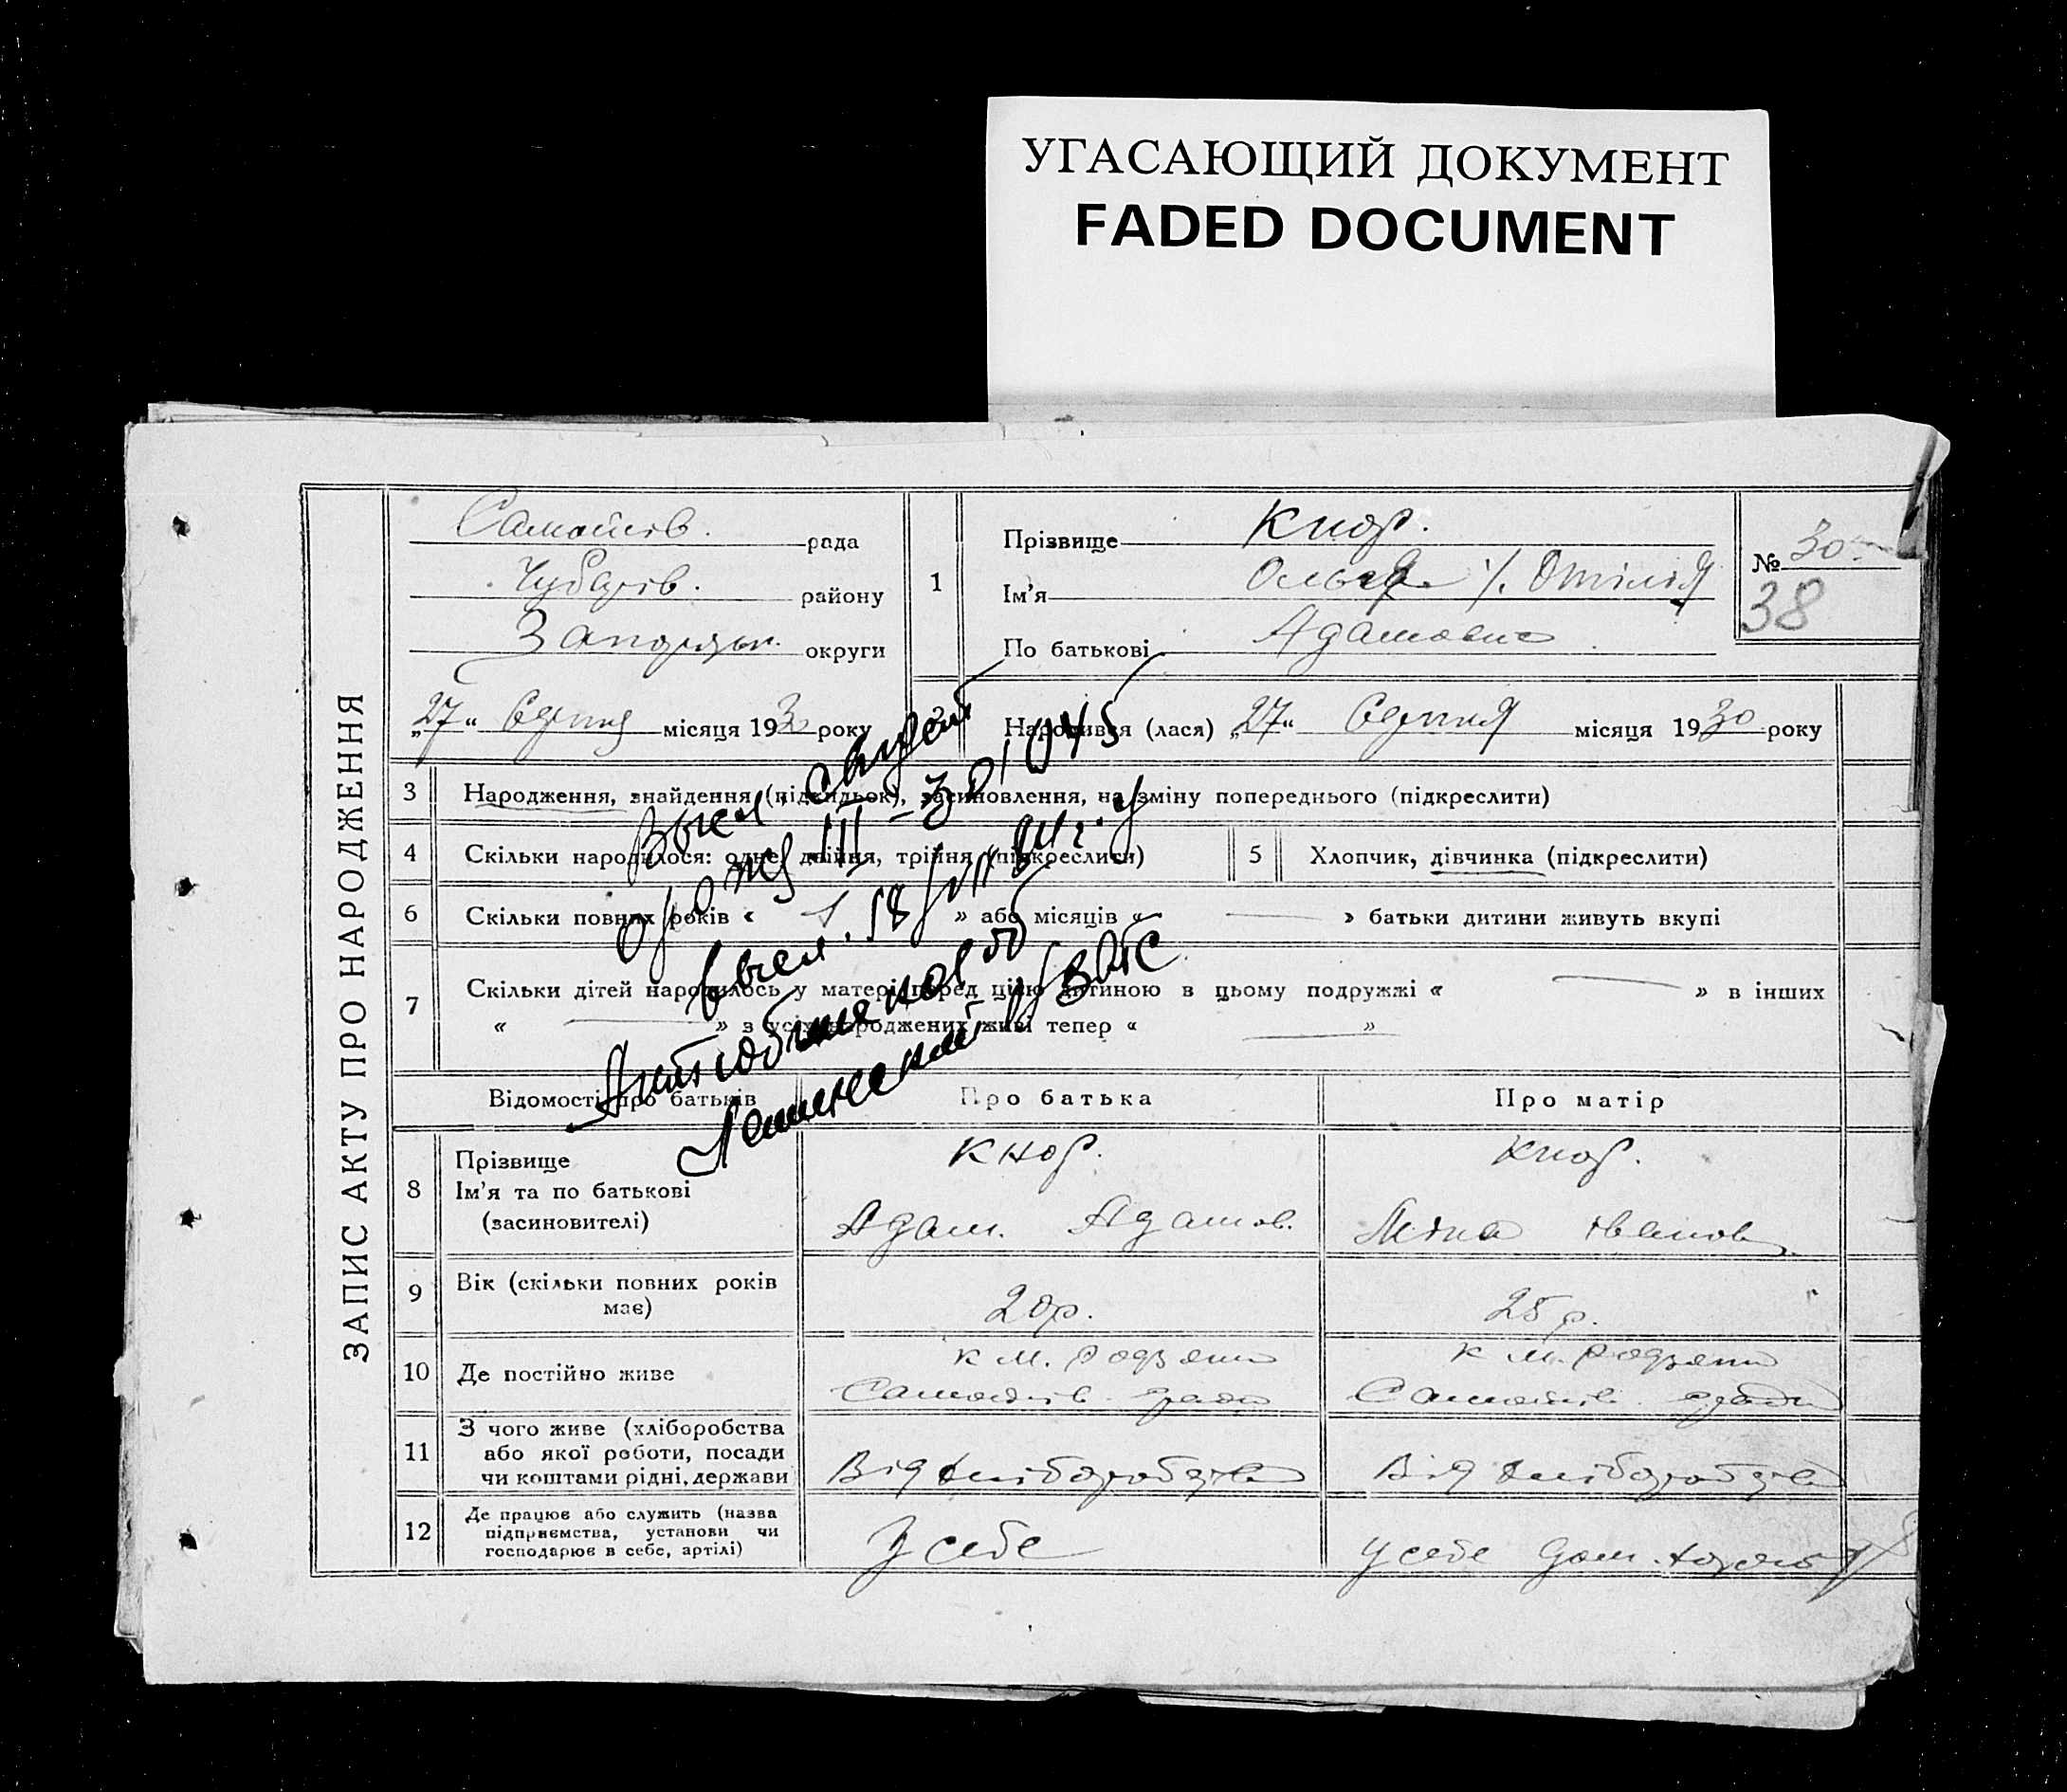 УГАСАЮЩИЙ ДОКУМЕНТ
FADED DOCUMENT
ЗАПИС АКТУ ПРО НАРОДЖЕННЯ
рада
Чубарів. району
Запоріжж. округи
1
Прізвище Кнор.
Ім'я Ольга /. Отілія
По батькові Адамовна
№ 30
38
„27" Серпня місяця 1930 року
Народився (лася) „27" Серпня місяця 1930 року
3 Народження, знайдення (підкидьок), засиновлення, на зміну попереднього (підкреслити)
4 Скільки народилося: одне, двійня, трійня (підкреслити)
5 Хлопчик, дівчинка (підкреслити)
6 Скільки повних років « 1 » або місяців « — » батьки дитини живуть вкупі
7 Скільки дітей народилось у матері перед цією дитиною в цьому подружжі « — » в інших
« — » з усіх народжених живі тепер « — »
Выел свидет
III - 30 1045
выел. 18/VII
Відомості про батьків
Про батька
Про матір
8 Прізвище
Ім'я та по батькові
(засиновителі)
Кнор.
Адам. Адамов.
Кнор.
Міна Іванов
9 Вік (скільки повних років
має)
20р.
25 р.
10 Де постійно живе
к М.
к М.
11 З чого живе (хліборобства
або якої роботи, посади
чи коштами рідні, держави
Від хліборобства
Від хліборобства
12 Де працює або служить (назва
підприємства, установи чи
господарює в себе, артілі)
У себе
У себе дом.